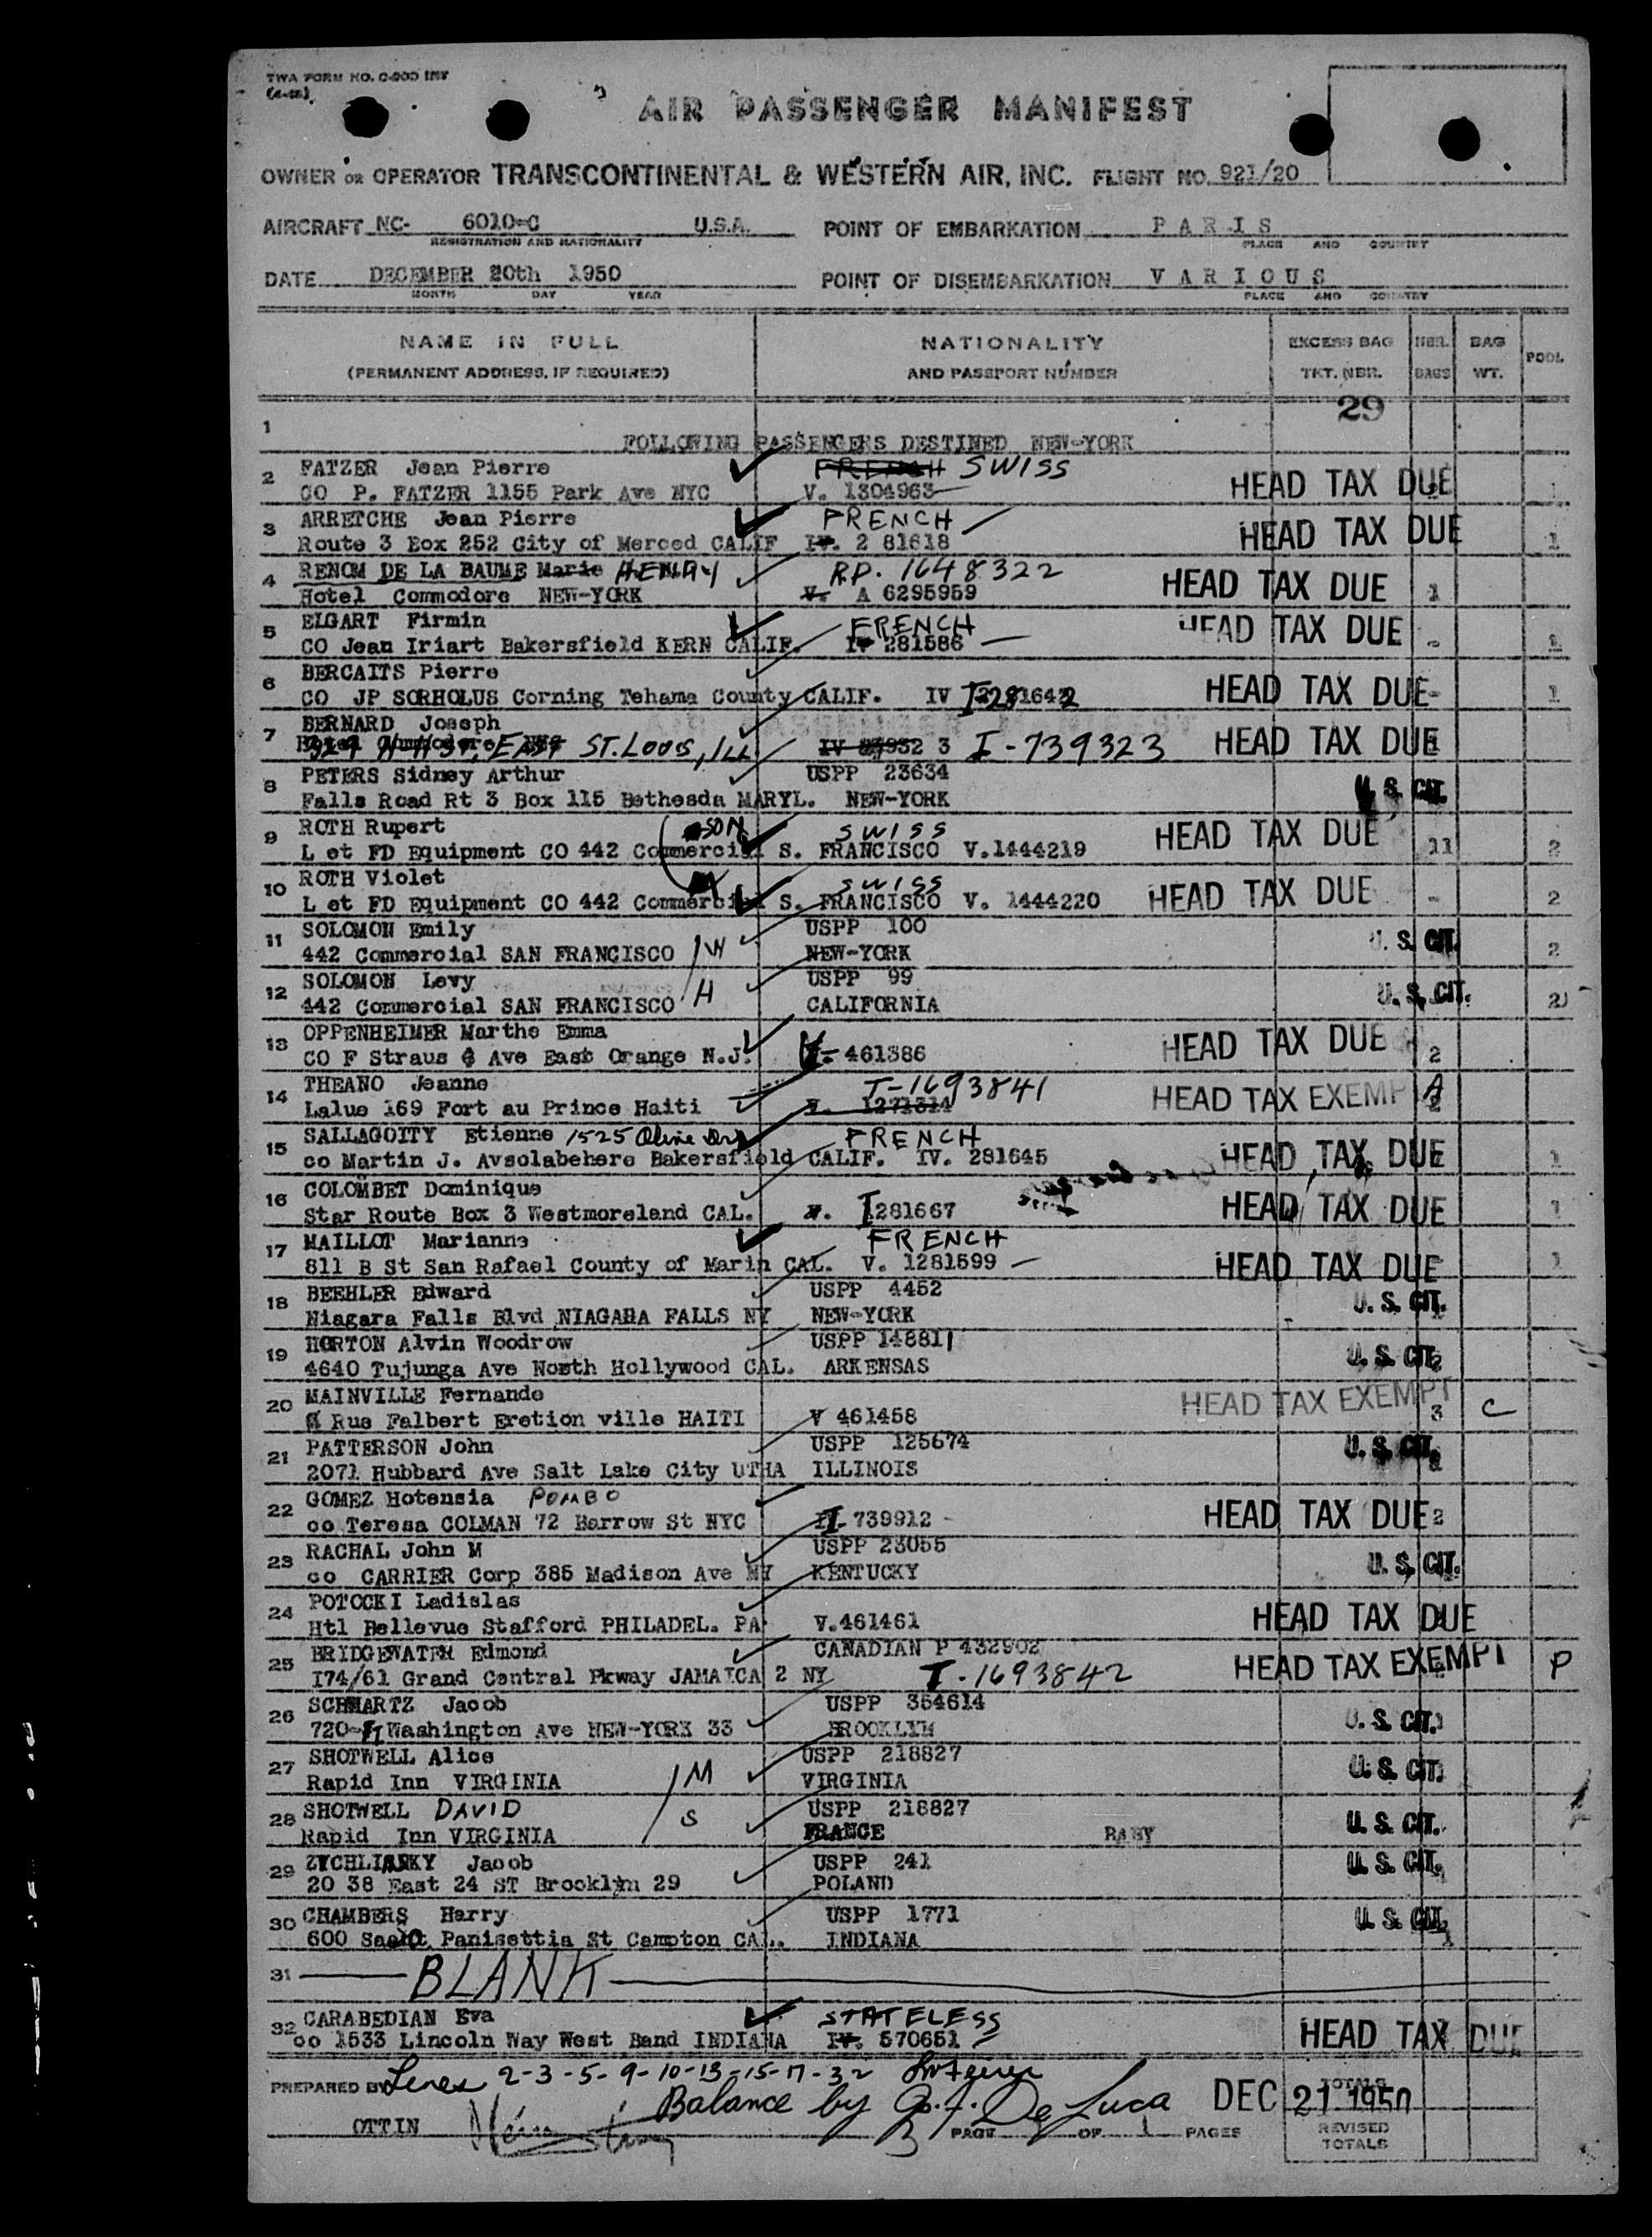 TWA FORM NO. C-900 INT
AIR PASSENGER MANIFEST
OWNER OR OPERATOR TRANSCONTINENTAL & WESTERN AIR, INC. FLIGHT NO. 921/20
AIRCRAFT NC- 6010-C U.S.A. POINT OF EMBARKATION P A R I S
REGISTRATION AND NATIONALITY PLACE AND COUNTRY
DATE DECEMBER 20th 1950 POINT OF DISEMBARKATION V A R I O U S
MONTH DAY YEAR PLACE AND COUNTRY
NAME IN FULL NATIONALITY EXCESS BAG NBR. BAG POOL
(PERMANENT ADDRESS, IF REQUIRED) AND PASSPORT NUMBER TKT. NBR. BAGS WT.
29
1 FOLLOWING PASSENGERS DESTINED NEW-YORK
2 FATZER Jean Pierre FRENCH SWISS
CO P. FATZER 1155 Park Ave NYC V. 1304963 HEAD TAX DUE
3 ARRETCHE Jean Pierre FRENCH
Route 3 Box 252 City of Merced CALIF IV. 2 81618 HEAD TAX DUE 1
4 RENOM DE LA BAUME Marie HENRY RP. 1648322
Hotel Commodore NEW-YORK V. A 6295959 HEAD TAX DUE 1
5 ELGART Firmin FRENCH
CO Jean Iriart Bakersfield KERN CALIF. IV 281586 HEAD TAX DUE - 1
6 BERCAITS Pierre
CO JP SORHOLUS Corning Tehama County CALIF. IV I-281642 HEAD TAX DUE - 1
7 BERNARD Joseph
EAST ST. LOUIS, ILL. I-739323 HEAD TAX DUE
8 PETERS Sidney Arthur USPP 23634
Falls Road Rt 3 Box 115 Bethesda MARYL. NEW-YORK U. S. CIT.
9 ROTH Rupert SON SWISS
L et FD Equipment CO 442 Commercial S. FRANCISCO V.1444219 HEAD TAX DUE 11 2
10 ROTH Violet M SWISS
L et FD Equipment CO 442 Commercial S. FRANCISCO V. 1444220 HEAD TAX DUE - 2
11 SOLOMON Emily USPP 100
442 Commercial SAN FRANCISCO W NEW-YORK U. S. CIT. 2
12 SOLOMON Levy USPP 99
442 Commercial SAN FRANCISCO H CALIFORNIA U. S. CIT. 2
13 OPPENHEIMER Marthe Emma
CO F Straus Ave East Orange N.J. 461386 HEAD TAX DUE 2
14 THEANO Jeanne I-1693841
Lalue 169 Fort au Prince Haiti V. 1271314 HEAD TAX EXEMP A
15 SALLAGOITY Etienne 1525 Oline Dr FRENCH
co Martin J. Avsolabehere Bakersfield CALIF. IV. 281645 HEAD TAX DUE 1
16 COLOMBET Dominique
Star Route Box 3 Westmoreland CAL. V. I281667 HEAD TAX DUE 1
17 MAILLOT Marianne FRENCH
811 B St San Rafael County of Marin CAL. V. 1281599 HEAD TAX DUE 1
18 BEEHLER Edward USPP 4452
Niagara Falls Blvd NIAGARA FALLS NY NEW-YORK U. S. CIT.
19 HORTON Alvin Woodrow USPP 148811
4640 Tujunga Ave North Hollywood CAL. ARKENSAS U. S. CIT. 2
20 MAINVILLE Fernande
Rue Falbert Eretion ville HAITI V 461458 HEAD TAX EXEMPT 3 C
21 PATTERSON John USPP 125674
2071 Hubbard Ave Salt Lake City UTHA ILLINOIS U. S. CIT.
22 GOMEZ Hotensia POMBO
co Teresa COLMAN 72 Barrow St NYC I- 739912 - HEAD TAX DUE 2
23 RACHAL John M USPP 23055
co CARRIER Corp 385 Madison Ave NY KENTUCKY U. S. CIT.
24 POTOCKI Ladislas
Htl Bellevue Stafford PHILADEL. PA V.461461 HEAD TAX DUE
25 BRIDGEWATER Edmond CANADIAN P 432902
174/61 Grand Central Pkway JAMAICA 2 NY I-1693842 HEAD TAX EXEMPT P
26 SCHWARTZ Jacob USPP 354614
720- Washington Ave NEW-YORK 33 BROOKLYN U. S. CIT.
27 SHOTWELL Alice USPP 218827
Rapid Inn VIRGINIA M VIRGINIA U. S. CIT.
28 SHOTWELL DAVID USPP 218827
Rapid Inn VIRGINIA S FRANCE BABY U. S. CIT.
29 ZYCHLINSKY Jacob USPP 241
20 38 East 24 ST Brooklyn 29 POLAND U. S. CIT.
30 CHAMBERS Harry USPP 1771
600 Panisettia St Campton CAL. INDIANA U. S. CIT.
31 BLANK
32 CARABEDIAN Eva STATELESS
co 1533 Lincoln Way West Band INDIANA IV. 570651 HEAD TAX DUE
PREPARED BY 2-3-5-9-10-13-15-17-32
Balance by J. De Luca DEC 21 1950 TOTALS
OTTIN PAGE OF 1 PAGES REVISED
TOTALS